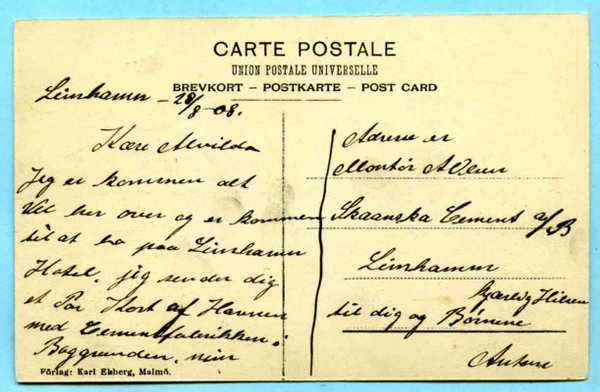 CARTE POSTALE
UNION POSTALE UNIVERSELLE
BREVKORT – POSTKARTE – POST CARD
Limhamn – 28/8-08.
Kære Alvilda
Jeg er kommen alt
Vel her over og er kommen
til at bo paa Limhamn
Hotel, jeg sender dig
et Par Kort af Havnen
med Cementfabrikken i
Baggrunden, min
Adresse er
Montör
Skaanska Cement a/B
Limhamn
Kjærlig Hilsen
til dig og Börnene
Anton
Förlag: Karl Ekberg, Malmö.